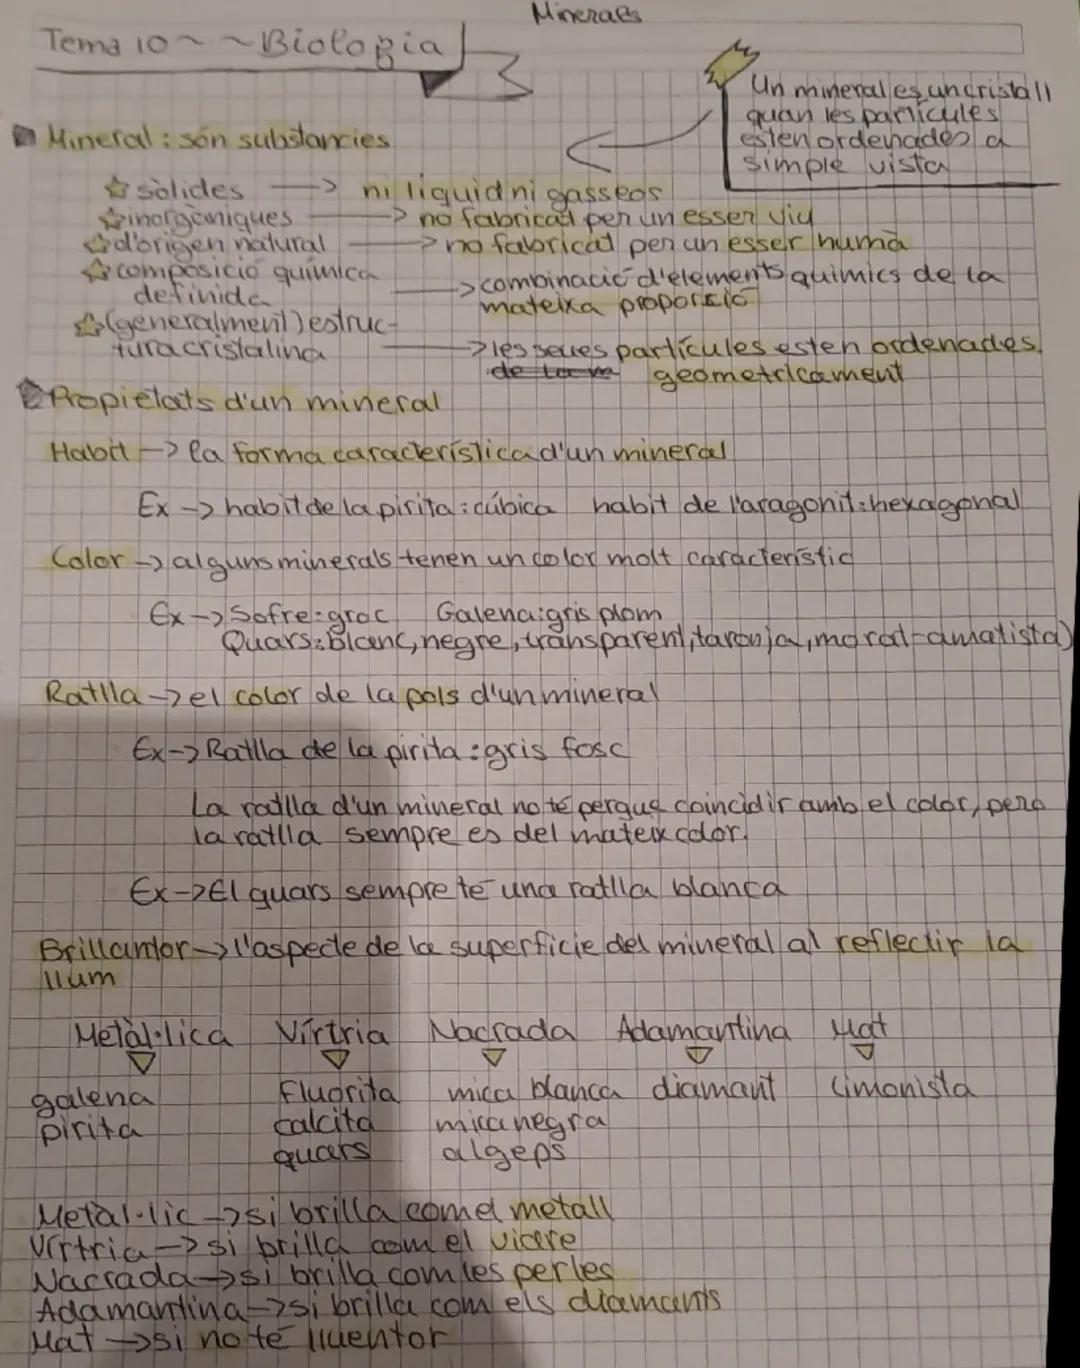 Minerals
Tema 10 ~ ~ Biologia
Un mineral es un cristall
quan les partícules
esten ordenades a
simple vista
Mineral : són substancies
sòlides -> ni liquid ni gasseos
inorgàniques -> no fabricat per un esser viu
d'origen natural -> no fabricat per un esser humà
composició química
definida -> combinació d'elements quimics de la
mateixa proporció
(generalment) estruc-
tura cristalina -> les seves partícules esten ordenades
de la m geometricament
Propietats d'un mineral
Habit -> la forma característica d'un mineral
Ex -> habit de la pirita : cúbica habit de l'aragonit: hexagonal
Color -> alguns minerals tenen un color molt característic
Ex -> Sofre: groc Galena: gris plom
Quars: blanc, negre, transparent, taronja, morat-amatista)
Ratlla -> el color de la pols d'un mineral
Ex -> Ratlla de la pirita : gris fosc
La ratlla d'un mineral no té perque coincidir amb el color, pero
la ratlla sempre es del mateix color.
Ex -> El quars sempre té una ratlla blanca
Brillantor -> l'aspecte de la superficie del mineral al reflectir la
llum
Metàl·lica Vírtria Nacrada Adamantina Mat
galena Fluorita mica blanca diamant Limonista
pirita calcita mica negra
quars algeps
Metàl·lic -> si brilla com el metall
Vírtria -> si brilla com el vidre
Nacrada -> si brilla com les perles
Adamantina -> si brilla com els diamants
Mat -> si no té lluentor